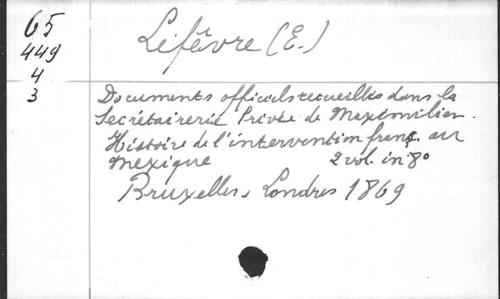 65
449
4
3
Lefêvre (E.)
Documents officiels recueillis dans la
Secrétairerie Privée de Maximilien.
Histoire de l'intervention franç. au
Mexique 2 vol. in 8º
Bruxelles, Londres 1869